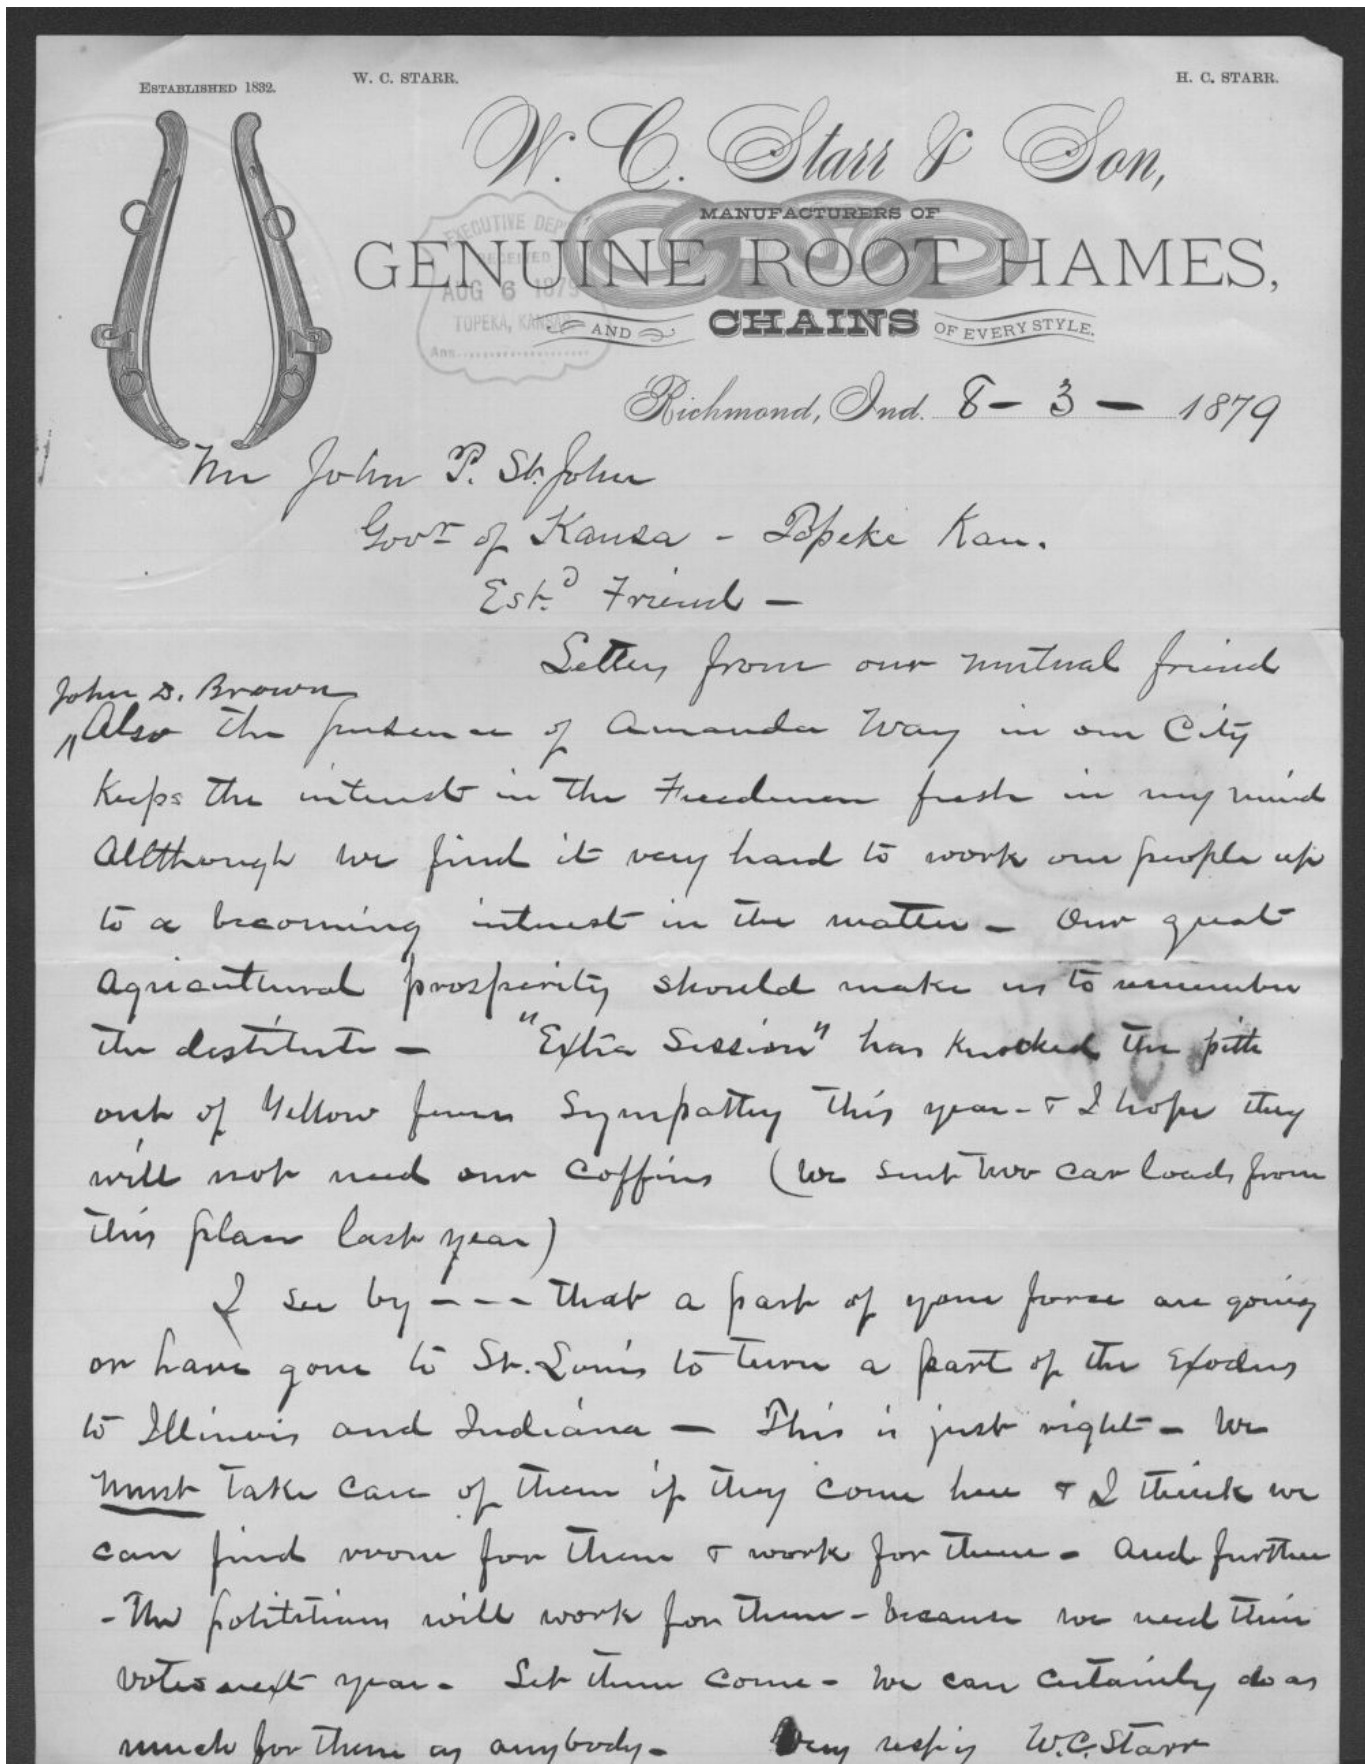 ESTABLISHED 1832.
W. C. STARR.
H. C. STARR.
W. C. Starr & Son,
MANUFACTURERS OF
GENUINE ROOT HAMES,
AND CHAINS OF EVERY STYLE.
EXECUTIVE DEPT
RECEIVED
AUG 6 1879
TOPEKA, KANSAS
Ans.
Richmond, Ind. 8 - 3 - 1879
Mr John P. St. John
Govr of Kansa - Topeke Kan.
Estd Friend -
Letters from our mutual friend
John D. Brown
Also the presence of Amanda Way in our City
Keeps the interest in the Freedmen fresh in my mind
Allthough we find it very hard to work our people up
to a becoming interest in the matter - Our great
agricultural prosperity should make us to remember
the destitute - "Extra Session" has knocked the pith
out of Yellow fever Sympathy this year - & I hope they
will not need our coffins (We sent two car loads from
this place last year)
I see by - - - that a part of your force are going
or have gone to St. Louis to turn a part of the Exodus
to Illinois and Indiana - This is just right - We
must take care of them if they come here & I think we
can find room for them & work for them - And further
- The polititians will work for them - because we need their
votes next year - Let them come - We can certainly do as
much for them as anybody - Very respy W.C. Starr